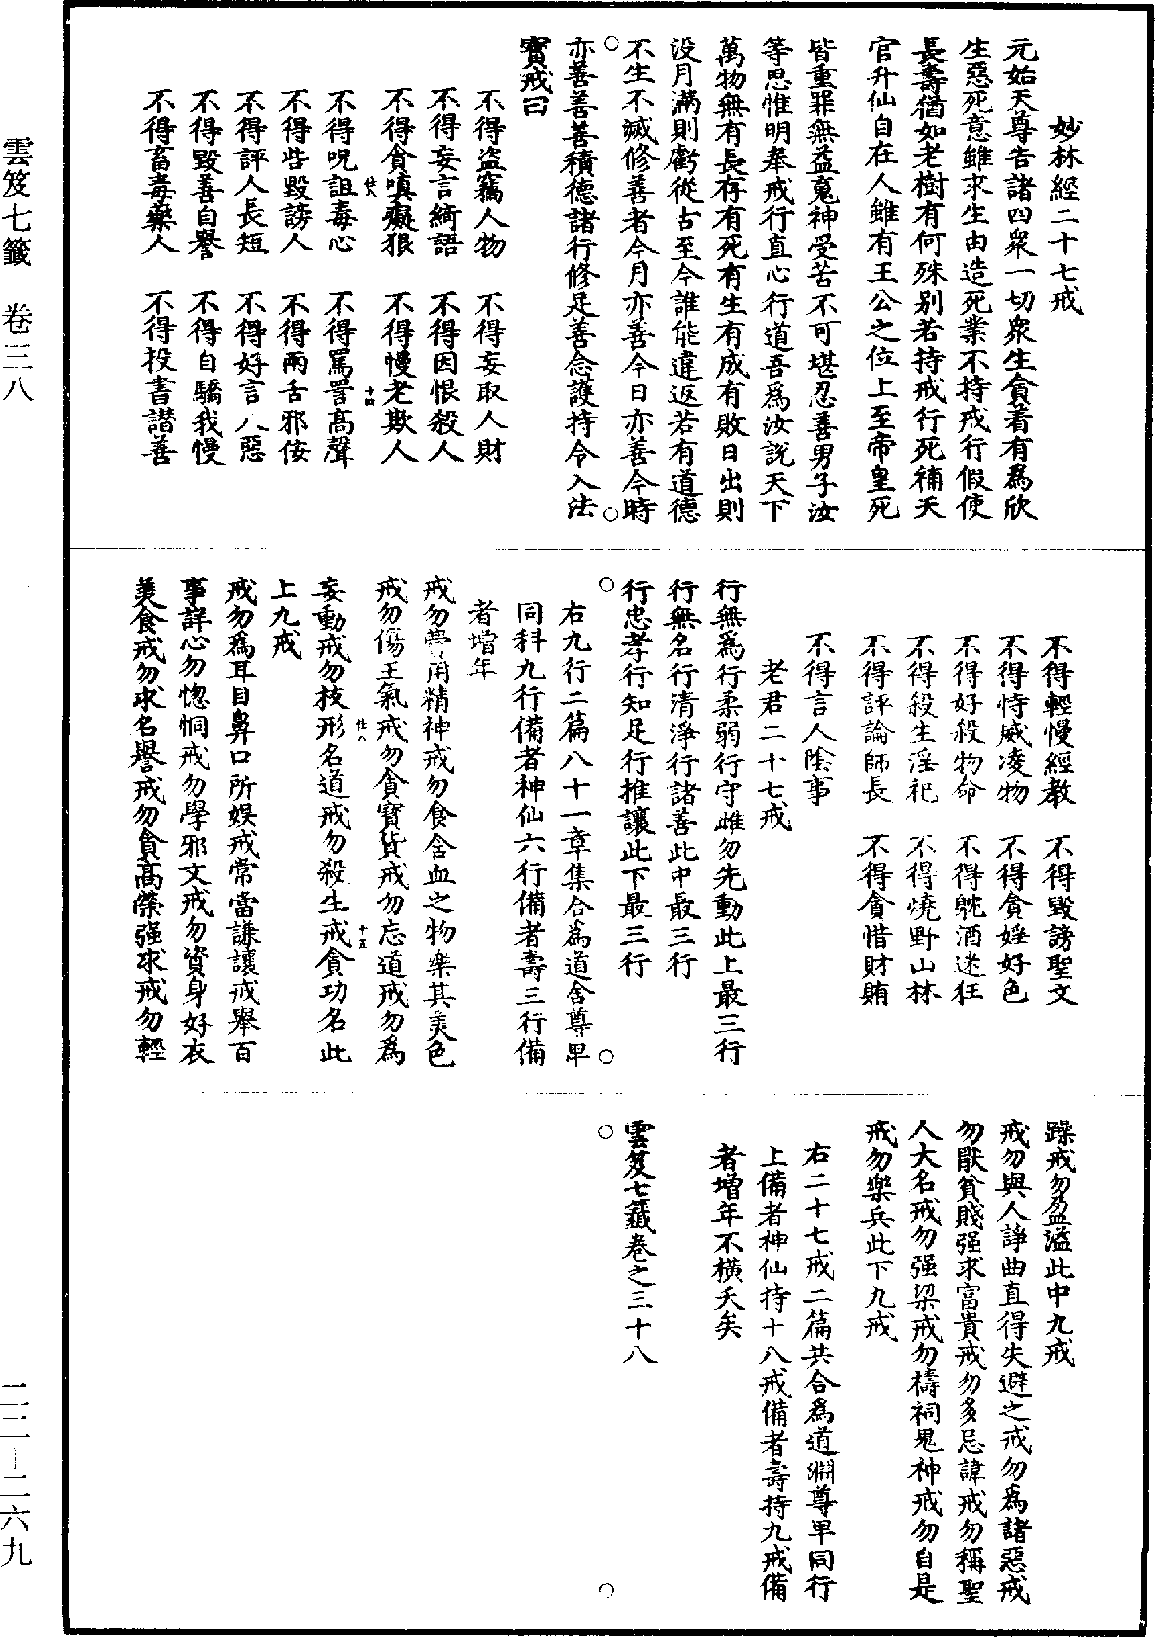 妙林經二十七戒
元始天尊告諸四衆一切衆生貪著有爲欣
生惡死意雖求生由造死業不持戒行假使
長壽猶如老樹有何殊別若持戒行死補天
官升仙自在人雖有王公之位上至帝皇死
皆重罪無益䰟神受苦不可堪忍善男子汝
等思惟明奉戒行直心行道吾爲汝說天下
萬物無有長存有死有生有成有敗日出則
没月滿則虧從古至今誰能違返若有道德
不生不滅修善者今月亦善今日亦善今時
亦善善善積德諸行修足善念護持令入法
寳戒曰
不得盜竊人物　不得妄取人財
不得妄言綺語　不得因恨殺人
不得貪嗔癡狠　不得慢老欺人
不得呪詛毒心　不得罵詈高聲
不得呰毀謗人　不得兩舌邪佞
不得評人長短　不得好言人惡
不得毀善自譽　不得自驕我慢
不得畜毒藥人　不得投書譖善
不得輕慢經教　不得毀謗聖文
不得恃威凌物　不得貪婬好色
不得好殺物命　不得躭酒迷狂
不得殺生淫祀　不得燒野山林
不得評論師長　不得貪惜財賄
不得言人陰事
老君二十七戒
行無爲行柔弱行守雌勿先動此上最三行
行無名行清淨行諸善此中最三行
行忠孝行知足行推讓此下最三行
右九行二篇八十一章集合爲道舍尊卑
同科九行備者神仙六行備者壽三行備
者增年
戒勿費用精神戒勿食含血之物樂其美色
戒勿傷王氣戒勿貪寳貨戒勿忘道戒勿爲
妄動戒勿枝形名道戒勿殺生戒貪功名此
上九戒
戒勿爲耳目鼻口所娛戒常當謙讓戒舉百
事詳心勿惚恫戒勿學邪文戒勿資身好衣
美食戒勿求名譽戒勿貪高榮强求戒勿輕
躁戒勿盈溢此中九戒
戒勿與人諍曲直得失避之戒勿爲諸惡戒
勿厭貧賤强求富貴戒勿多忌諱戒勿稱聖
人大名戒勿强梁戒勿禱祠鬼神戒勿自是
戒勿樂兵此下九戒
右二十七戒二篇共合爲道淵尊卑同行
上備者神仙持十八戒備者壽持九戒備
者增年不橫夭矣
雲笈七籤卷之三十八
雲笈七籤　卷三八
二二—二六九